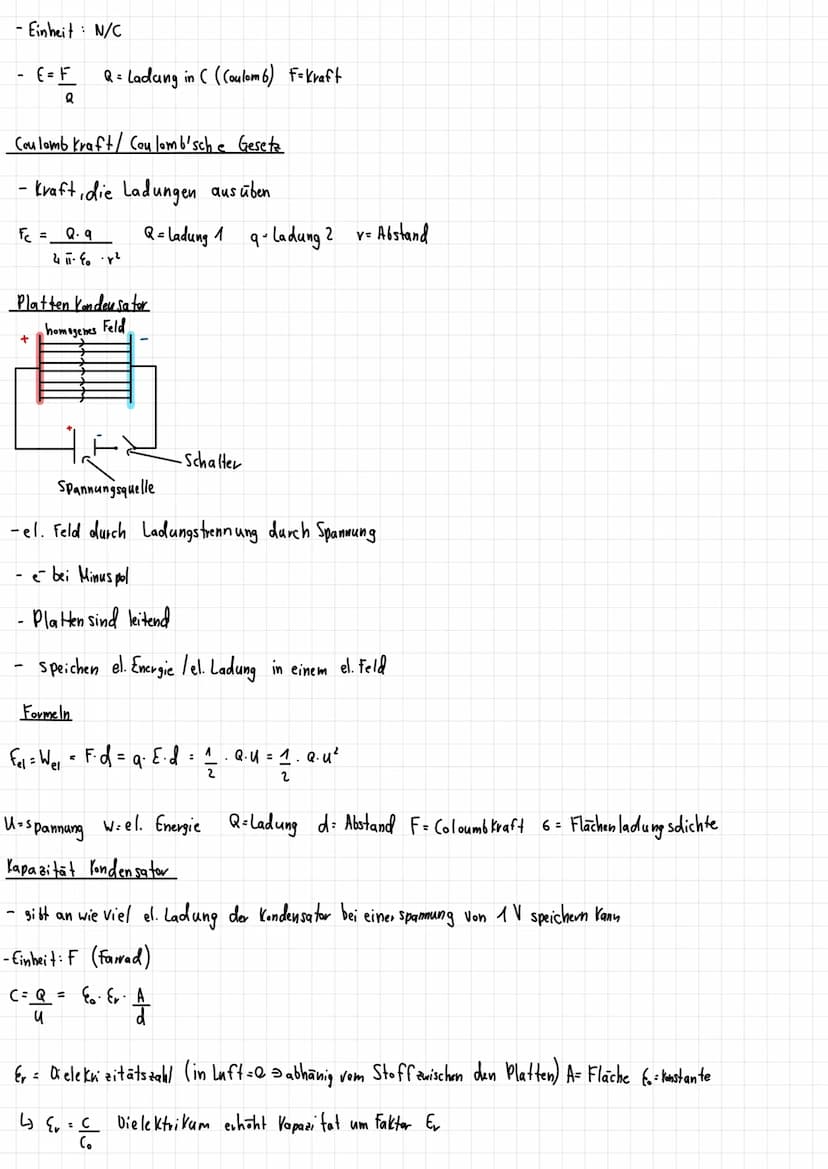 - Einheit: N/C
- E = F/Q Q = Ladung in C (Coulomb) F = Kraft
Coulomb Kraft / Coulomb'sche Gesetz
- Kraft, die Ladungen ausüben
Fc = Q · q / 4 π · ε₀ · r² Q = Ladung 1 q = Ladung 2 r = Abstand
Platten Kondensator
homogenes Feld
+ -
+ -
Schalter
Spannungsquelle
- el. Feld durch Ladungstrennung durch Spannung
- e⁻ bei Minuspol
- Platten sind leitend
- speichen el. Energie / el. Ladung in einem el. Feld
Formeln
Eel = Wel = F · d = q · E · d = 1/2 · Q · U = 1/2 · Q · U²
U = Spannung W = el. Energie Q = Ladung d = Abstand F = Coloumb Kraft σ = Flächenladungsdichte
Kapazität Kondensator
- gibt an wie viel el. Ladung der Kondensator bei einer Spannung von 1 V speichern kann
- Einheit: F (Farrad)
C = Q/U = ε₀ · εr · A/d
εr = Dielektrizitätszahl (in Luft = 0 ⇒ abhänig vom Stoff zwischen den Platten) A = Fläche ε₀ = Konstante
↳ εr = C/C₀ Dielektrikum erhöht Kapazität um Faktor εr